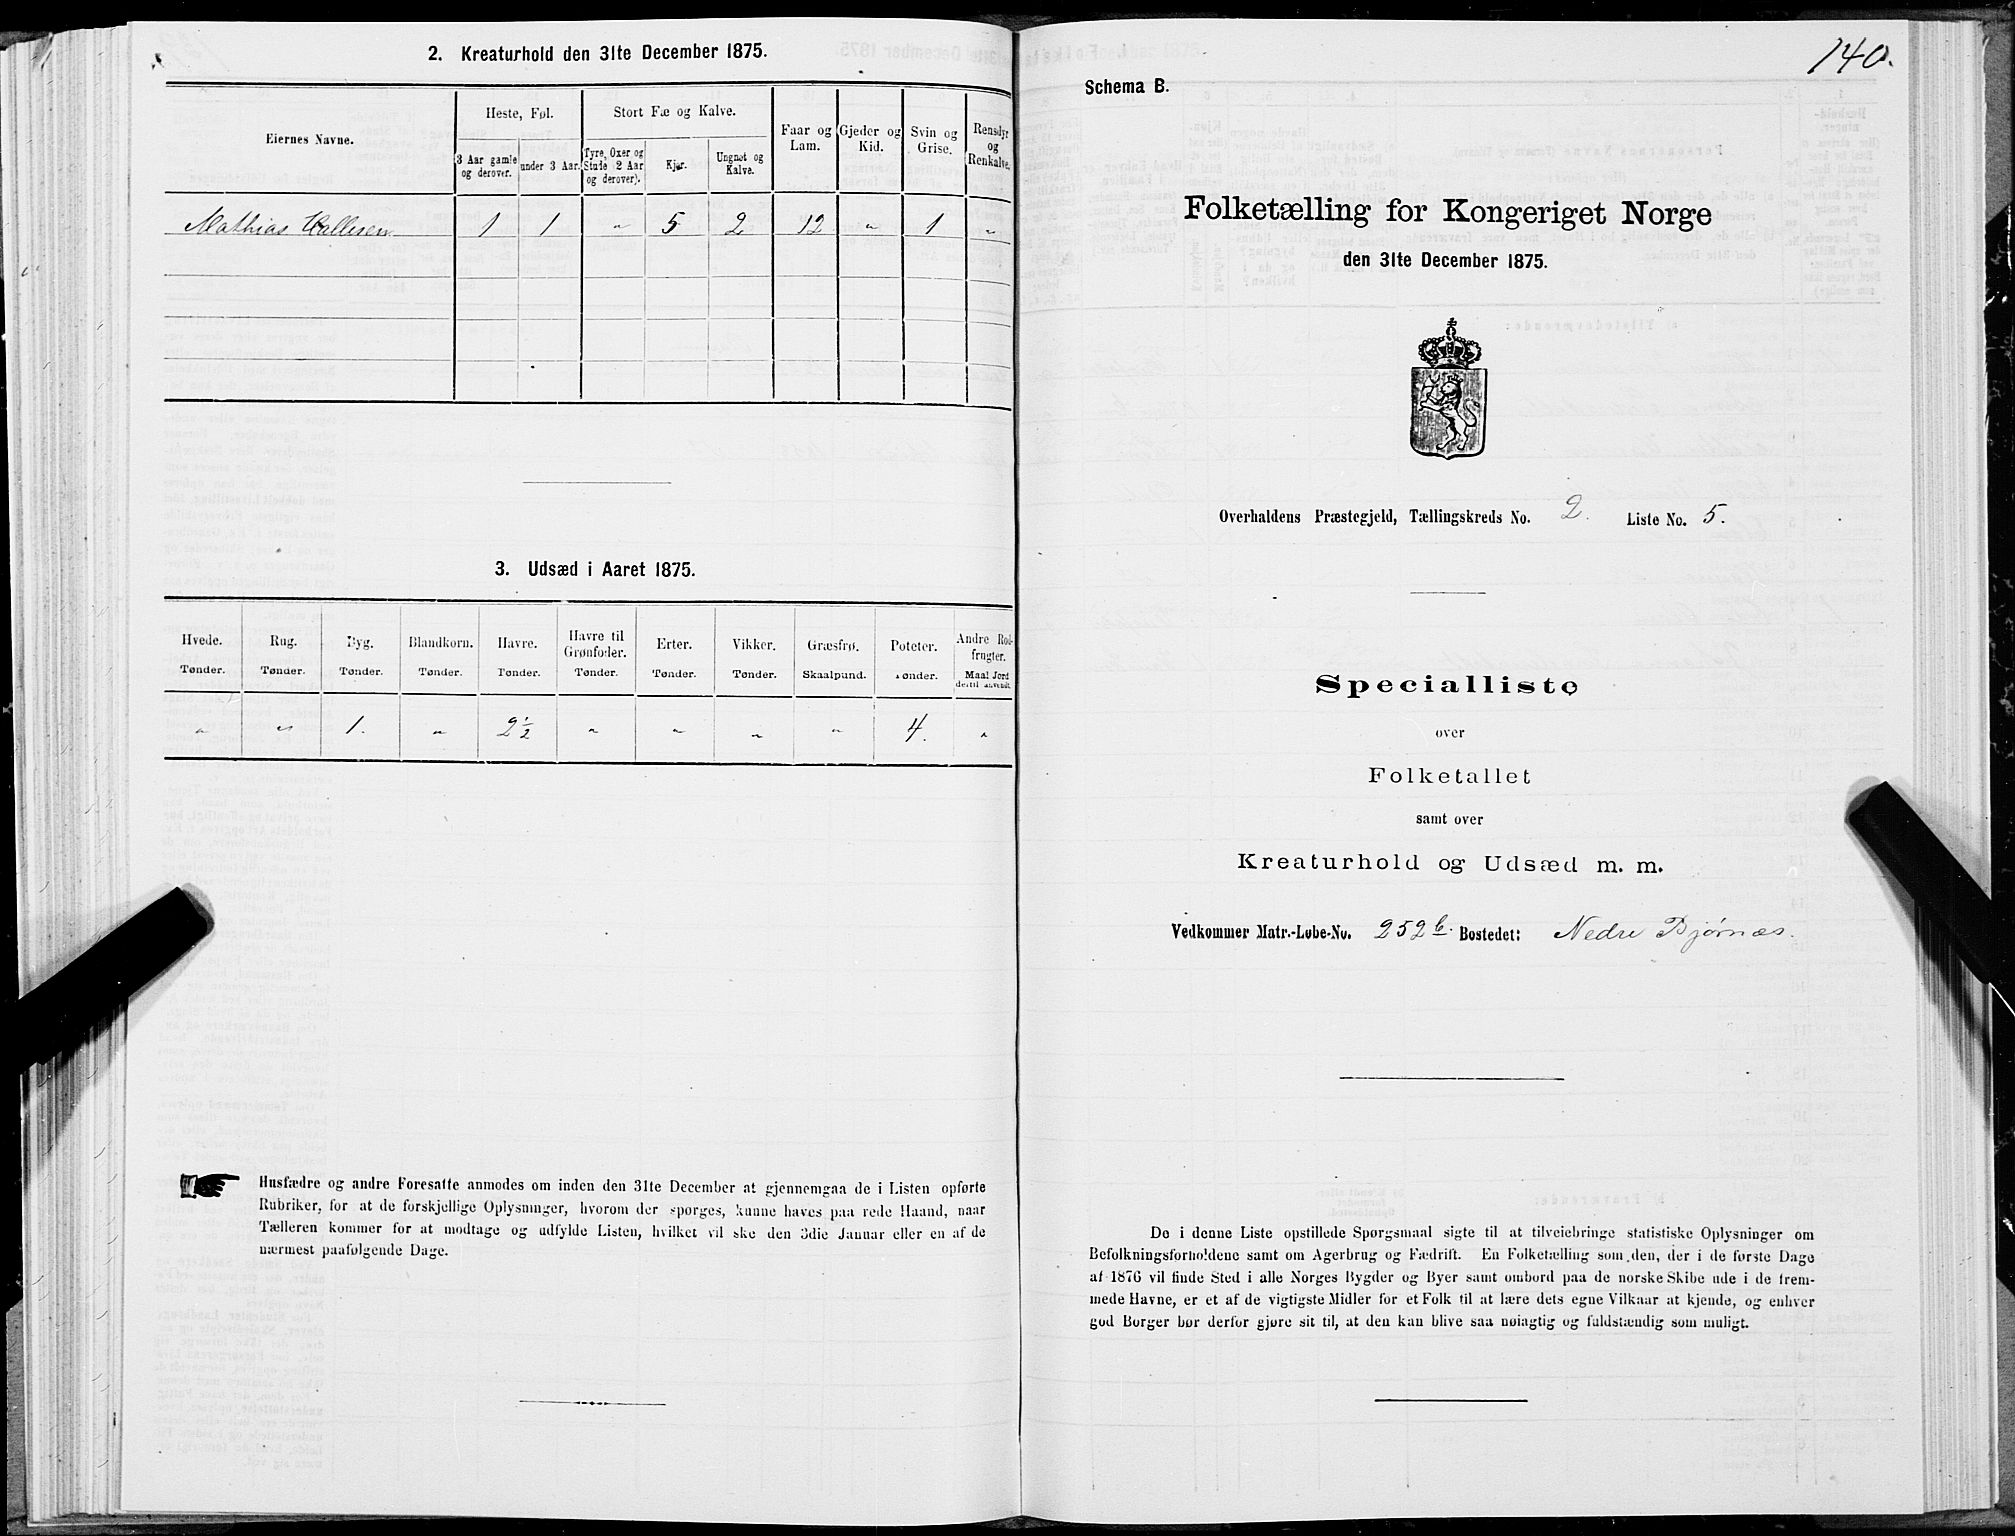 2. Kreaturhold den 31te December 1875.
Eiernes Navne.
Heste, Føl.
Stort Fæ og Kalve.
Faar og Lam.
Gjeder og Kid.
Svin og Grise.
Rensdyr og Renkalve.
3 Aar gamle og derover.
under 3 Aar.
Tyre, Oxer og Stude (2 Aar og derover).
Kjør.
Ungnøt og Kalve.
Mathias Hallesen 1 1 " 5 2 12 " 1 "
3. Udsæd i Aaret 1875.
Hvede. Rug. Byg. Blandkorn. Havre. Havre til Grønfoder. Erter. Vikker. Græsfrø. Poteter. Andre Rodfrugter.
Tønder. Tønder. Tønder. Tønder. Tønder. Tønder. Tønder. Tønder. Skaalpund. Tønder. Maal Jord dertil anvendt.
" " 1. " 2½ " " " " 4. "
Husfædre og andre Foresatte anmodes om inden den 31te December at gjennemgaa de i Listen opførte
Rubriker, for at de forskjellige Oplysninger, hvorom der spørges, kunne haves paa rede Haand, naar
Tælleren kommer for at modtage og udfylde Listen, hvilket vil ske den 3die Januar eller en af de
nærmest paafølgende Dage.
140.
Schema B.
Folketælling for Kongeriget Norge
den 31te December 1875.
Overhaldens Præstegjeld, Tællingskreds No. 2. Liste No. 5.
Specialliste
over
Folketallet
samt over
Kreaturhold og Udsæd m. m.
Vedkommer Matr.-Løbe-No. 252b. Bostedet: Nedre Bjørnæs.
De i denne Liste opstillede Spørgsmaal sigte til at tilveiebringe statistiske Oplysninger om
Befolkningsforholdene samt om Agerbrug og Fædrift. En Folketælling som den, der i de første Dage
af 1876 vil finde Sted i alle Norges Bygder og Byer samt ombord paa de norske Skibe ude i de frem-
mede Havne, er et af de vigtigste Midler for et Folk til at lære dets egne Vilkaar at kjende, og enhver
god Borger bør derfor gjøre sit til, at den kan blive saa nøiagtig og fuldstændig som muligt.